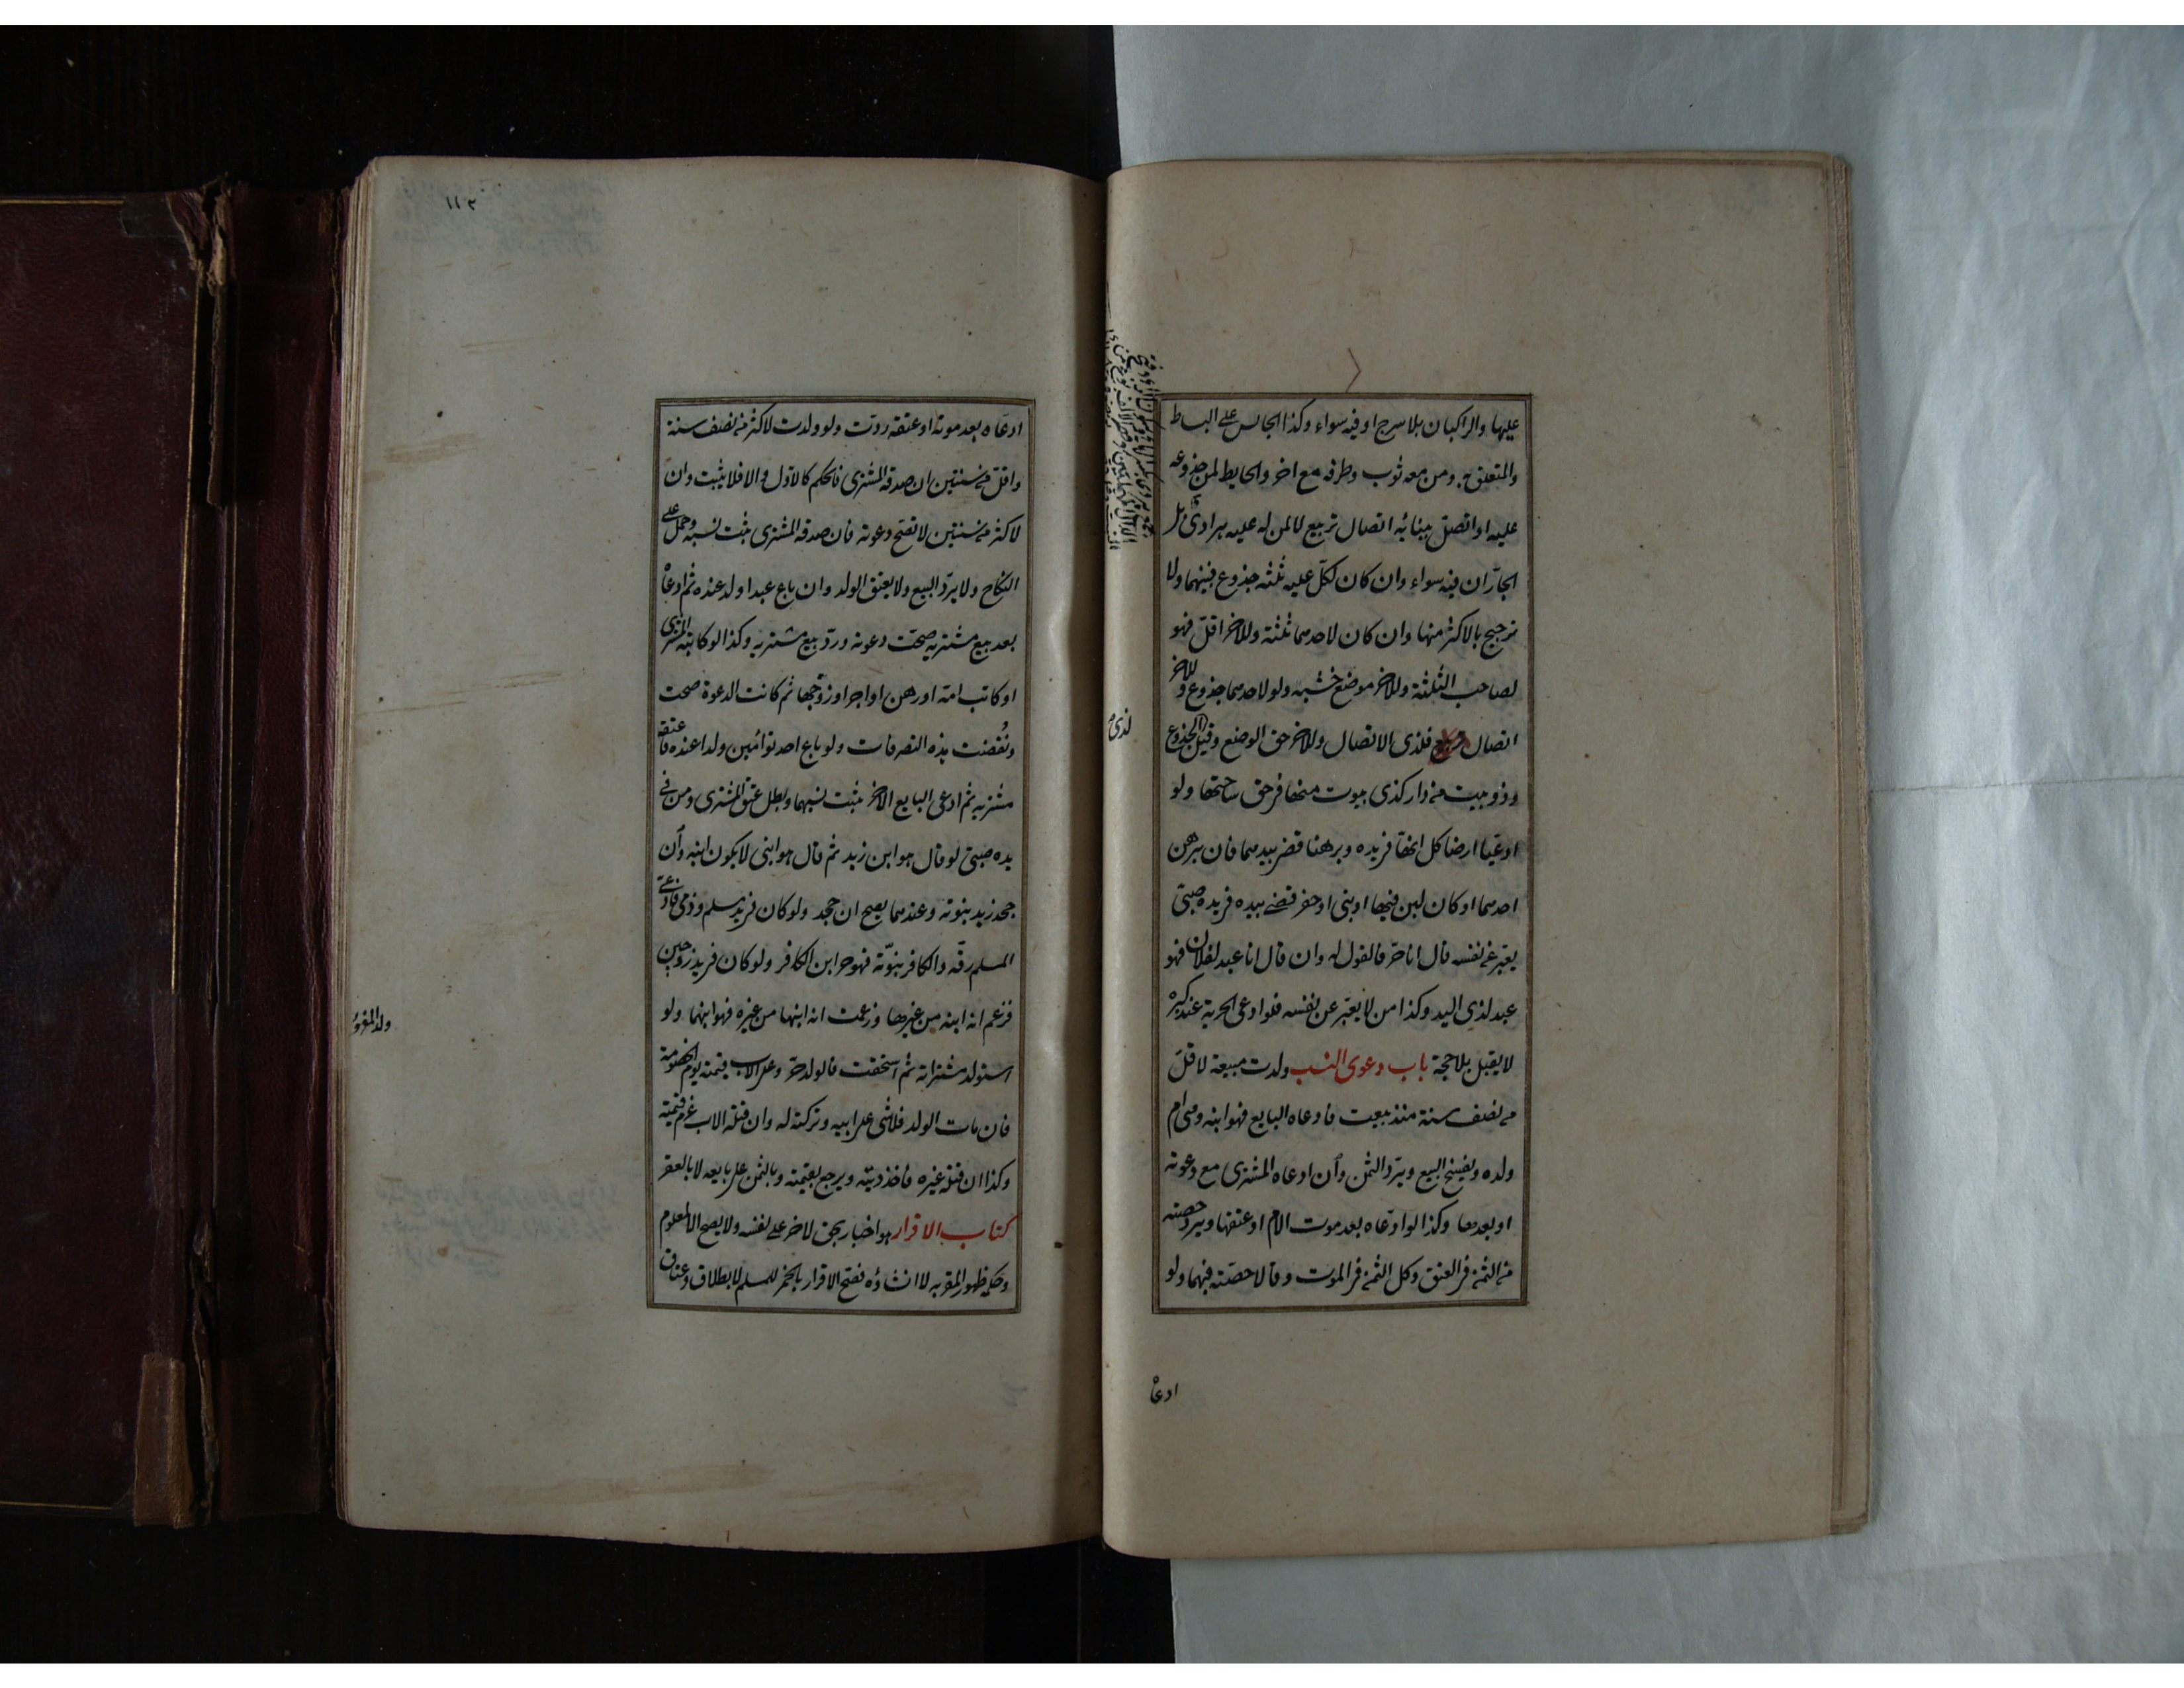 عليها والراكبان بلا سرج او فيه سواء وكذا الجالس على البساط
والمتعلق به ومن معه ثوب وطرفه مع اخر والحايط لمن جذوعه
عليه او اتصل ببنائه اتصال تربيع لا لمن له عليه هرادى بل
الجاران فيه سواء وان كان لكل عليه ثلثة جذوع فبينهما ولا
ترجيح بالاكثر منها وان كان لاحدهما ثلثة وللاخر اقل فهو
لصاحب الثلثة وللاخر موضع خشبه ولو لاحدهما جذوع وللاخر
اتصال فلذى الاتصال وللاخر حق الوضع وقيل الجذوع
لذى
وذو بيت من دار كذى بيوت منها فى حق ساحتها ولو
ادعيا ارضا كل انها فى يده وبرهنا قضى بيدهما فان برهن
احدهما او كان لبن فيها او بنى او حفر قضى بيده فى يده صبى
يعبر عن نفسه قال انا حر فالقول له وان قال انا عبد لفلان فهو
عبد لذى اليد وكذا من لا يعبر عن نفسه فلو ادعى الحرية عند كبره
لا يقبل بلا حجة باب دعوى النسب ولدت مبيعة لاقل
من نصف سنة منذ بيعت فادعاه البايع فهو ابنه وهى ام
ولده ويفسخ البيع ويرد الثمن وان ادعاه المشترى مع دعوته
او بعدها وكذا لو ادعاه بعد موت الام او عتقها ويرد حصته
من الثمن فى العتق وكل الثمن فى الموت وقالا حصته فيهما ولو
ادعا
١١٣
ادعاه بعد موته او عتقه ردت ولو ولدت لاكثر من نصف سنة
واقل من سنتين ان صدقه المشترى فالحكم كالاول والا فلا يثبت وان
لاكثر من سنتين لا تصح دعوته فان صدقه المشترى يثبت نسبه وحمل على
النكاح ولا يرد البيع ولا يعتق الولد وان باع عبدا ولد عنده ثم ادعاه
بعد بيع مشتريه صحت دعوته ورد بيع مشتريه وكذا لو كاتبه المشترى
او كاتب امه او رهن او اجر او زوجها ثم كانت الدعوة صحت
ونقضت هذه التصرفات ولو باع احد توأمين ولدا عنده فاعتقه
مشتريه ثم ادعى البايع الاخر يثبت نسبهما وبطل عتق المشترى ومن فى
يده صبى لو قال هو ابن زيد ثم قال هو ابنى لا يكون ابنه وان
جحد زيد بنوته وعندهما يصح ان جحد ولو كان فى يد مسلم وذمى فادعى
المسلم رقه والكافر بنوته فهو حر ابن الكافر ولو كان فى يد زوجين
فزعم انه ابنه من غيرها وزعمت انه ابنها من غيره فهو ابنهما ولو
ولد المغرور
استولد مشتراته ثم استحقت فالولد حر وعلى الاب قيمته يوم الخصومة
فان مات الولد فلا شئ على ابيه وتركته له وان قتله الاب غرم قيمته
وكذا ان قتله غيره فاخذ ديته ويرجع بقيمته وبالثمن على بايعه لا بالعقر
كتاب الاقرار هو اخبار بحق لاخر على نفسه ولا يصح الا لمعلوم
وحكمه ظهور المقر به لا انشاؤه فصح الاقرار بالخمر للمسلم لا بطلاق وعتاق